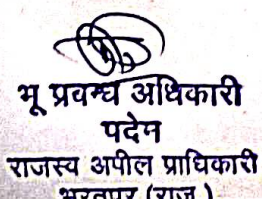 भू प्रबन्ध अधिकारी
पदेन
राजस्व अपील प्राधिकारी
भरतपुर (राज.)